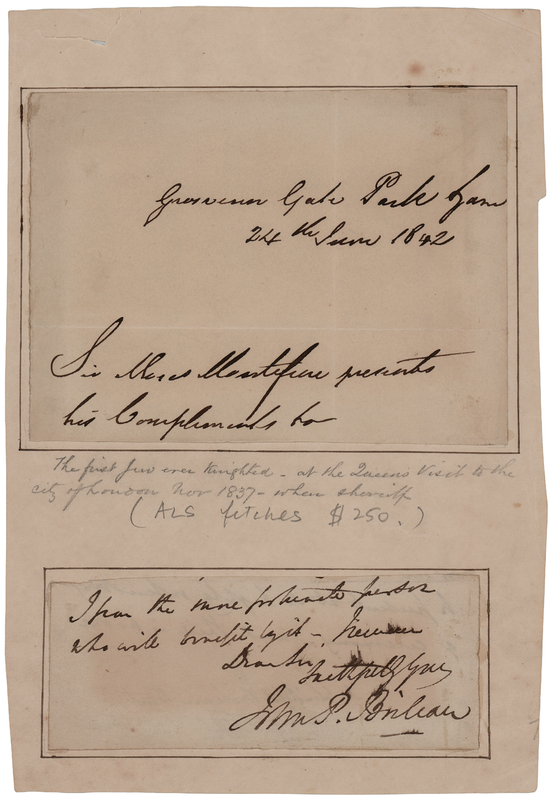 Grosvenor Gate Park Lane
24th June 1842
Sir Moses Montefiore presents
his Compliments to
The first Jew ever Knighted - at the Queens Visit to the
city of London Nov 1837 - when sheriff
(ALS fetches $250.)
the more fortunate person
who will benefit by it -
Dear Sir
Faithfully Yours
John P. Boileau